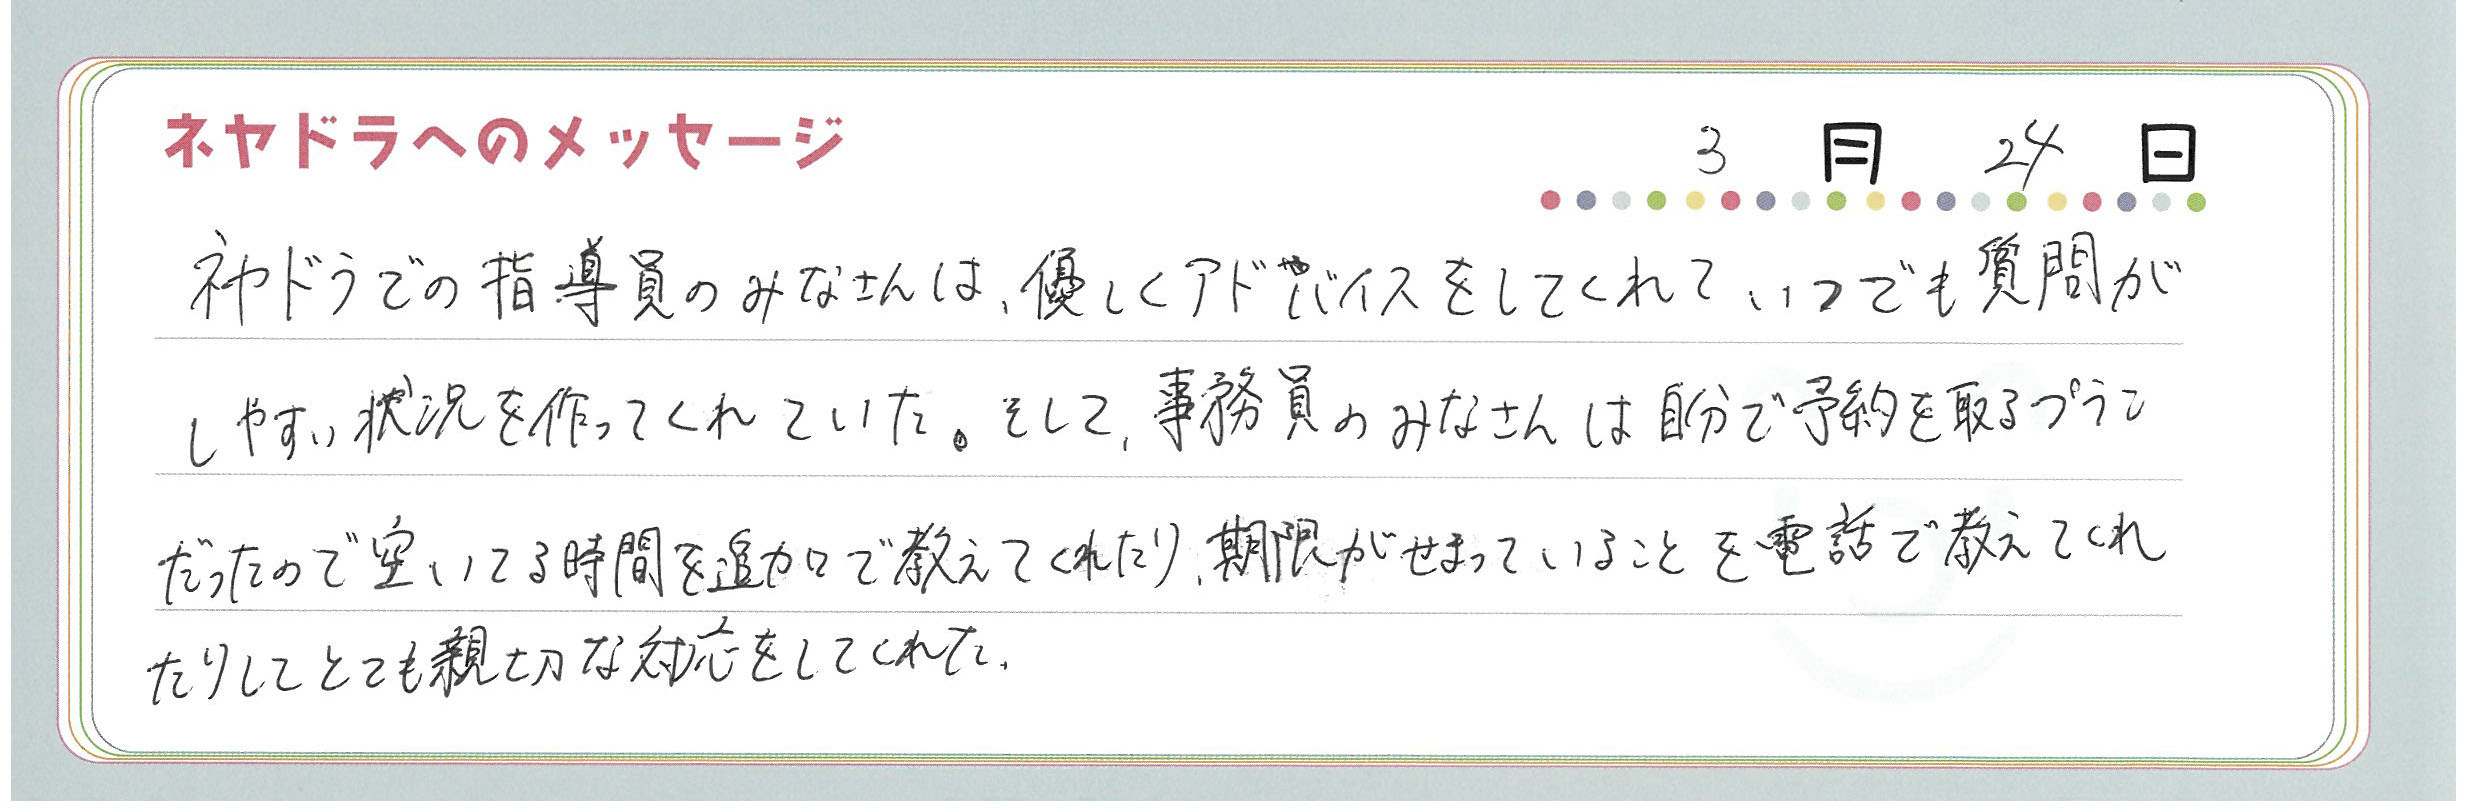 ネヤドラへのメッセージ
3月24日
ネヤドラでの指導員のみなさんは、優しくアドバイスをしてくれて、いつでも質問が
しやすい状況を作ってくれていた。そして、事務員のみなさんは自分で予約を取るプラン
だったので空いてる時間を追加で教えてくれたり、期限がせまっていることを電話で教えてくれ
たりしてとても親切な対応をしてくれた。